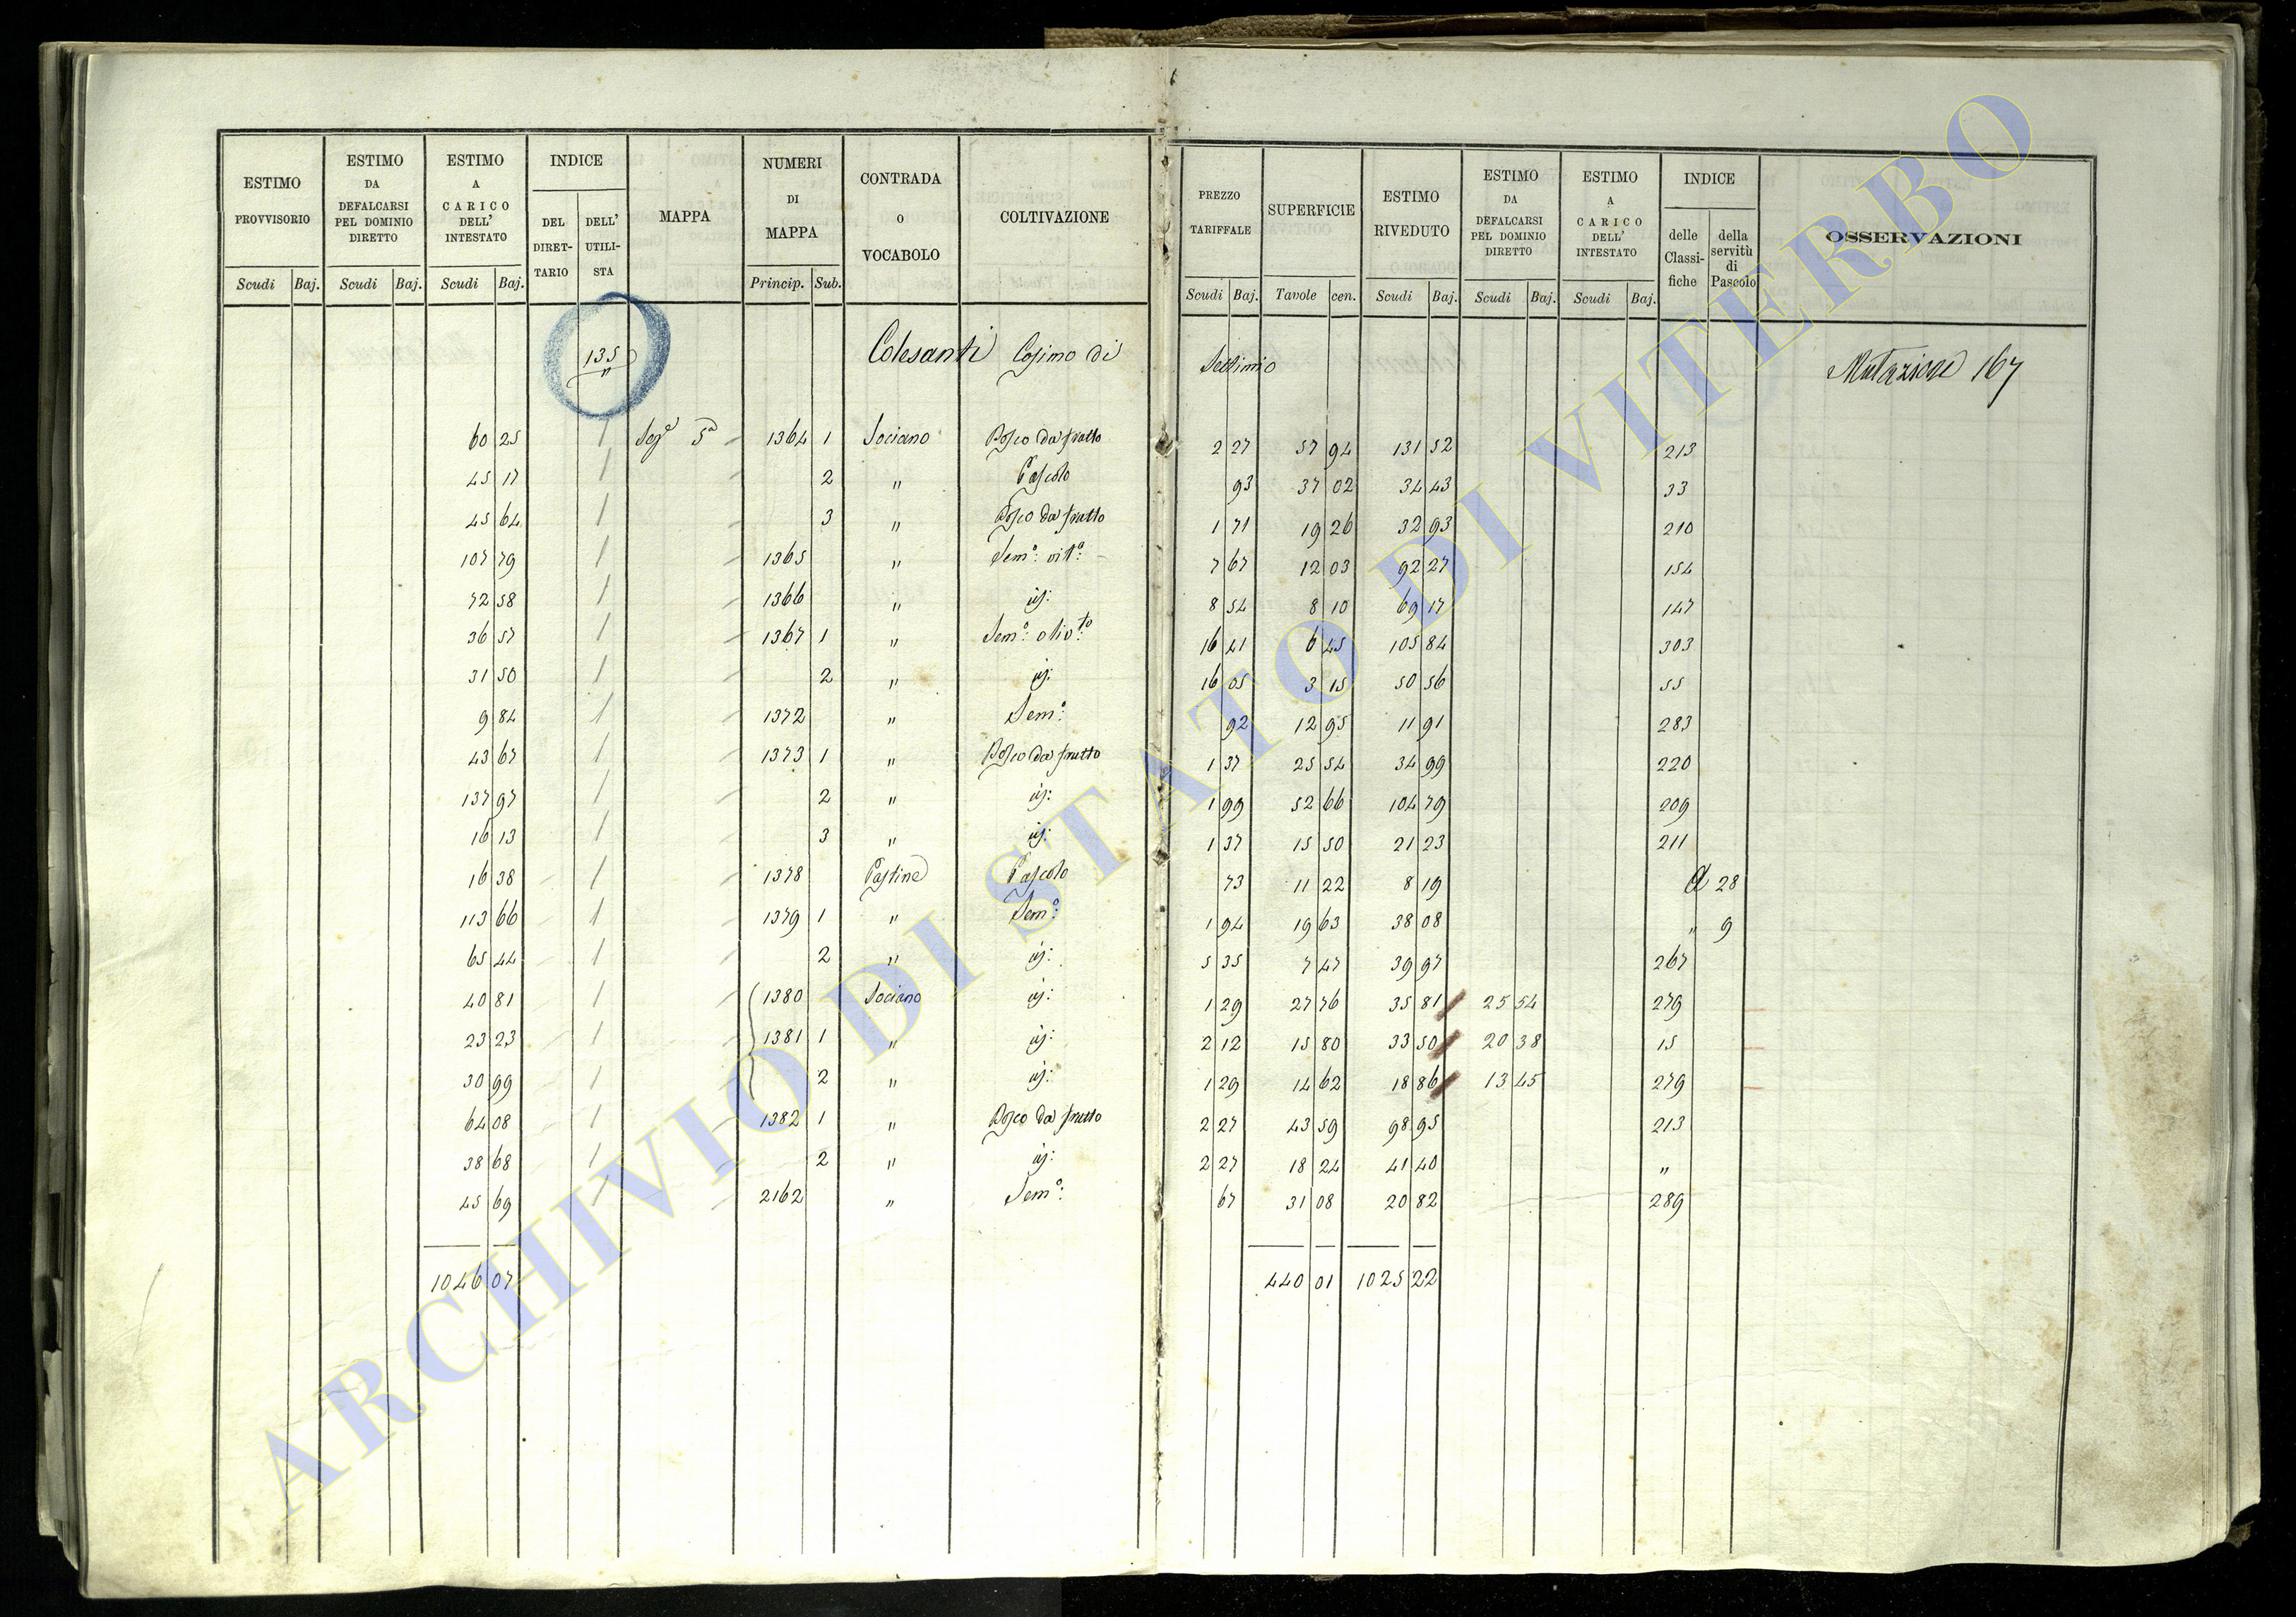 ESTIMO PROVVISORIO
ESTIMO DA DEFALCARSI PEL DOMINIO DIRETTO
ESTIMO A CARICO DELL' INTESTATO
INDICE
DEL DIRET-TARIO
DELL' UTILI-STA
MAPPA
NUMERI DI MAPPA
CONTRADA O VOCABOLO
COLTIVAZIONE
PREZZO TARIFFALE
SUPERFICIE
ESTIMO RIVEDUTO
ESTIMO DA DEFALCARSI PEL DOMINIO DIRETTO
ESTIMO A CARICO DELL' INTESTATO
INDICE
delle Classi-fiche
della servitù di Pascolo
OSSERVAZIONI
Scudi Baj. Scudi Baj. Scudi Baj. Princip. Sub. Scudi Baj. Tavole cen. Scudi Baj. Scudi Baj. Scudi Baj.
135 Colesanti Cosimo di Settimio Mutazione 167
60 25 1 Sez.e 5a 1364 1 Sociano Bosco da frutto 2 27 57 94 131 52 213
45 17 1 2 " Pascolo 93 37 02 34 43 33
45 64 1 3 " Bosco da frutto 1 71 19 26 32 93 210
107 79 1 1365 " Sem.o: vit.o: 7 67 12 03 92 27 154
72 58 1 1366 " id: 8 54 8 10 69 17 147
36 57 1 1367 1 " Sem.o: oliv.to 16 41 6 45 105 84 303
31 50 1 2 " id: 16 05 3 15 50 56 55
9 84 1 1372 " Sem.o: 92 12 95 11 91 283
43 67 1 1373 1 " Bosco da frutto 1 37 25 54 34 99 220
137 97 1 2 " id: 1 99 52 66 104 79 209
16 13 1 3 " id: 1 37 15 50 21 23 211
16 38 1 1378 Pastine Pascolo 73 11 22 8 19 A 28
113 66 1 1379 1 " Sem.o: 1 94 19 63 38 08 " 9
65 44 1 2 " id: 5 35 7 47 39 97 267
40 81 1 1380 Sociano id: 1 29 27 76 35 81 25 54 279
23 23 1 1381 1 " id: 2 12 15 80 33 50 20 38 15
30 99 1 2 " id: 1 29 14 62 18 86 13 45 279
64 08 1 1382 1 " Bosco da frutto 2 27 43 59 98 95 213
38 68 1 2 " id: 2 27 18 24 41 40 "
45 69 1 2162 " Sem.o: 67 31 08 20 82 289
1046 07 440 01 1025 22
ARCHIVIO DI STATO DI VITERBO